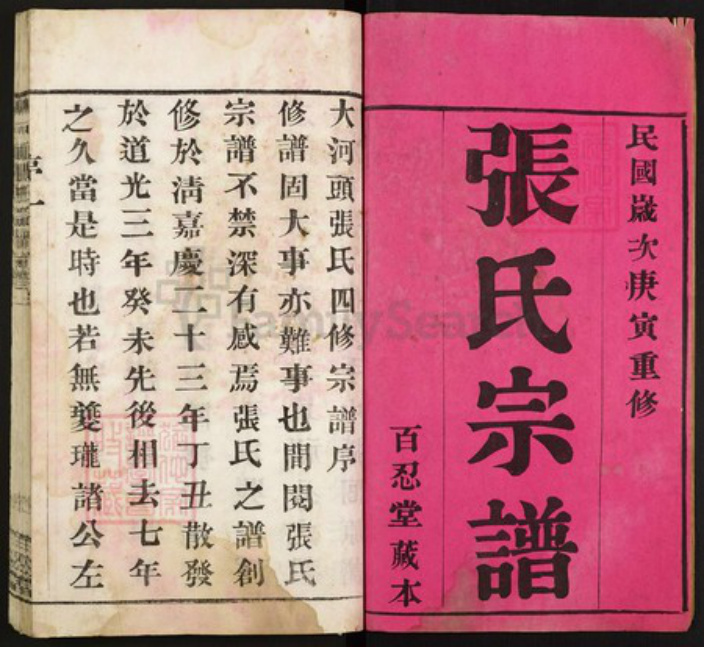 民國歲次庚寅重修
張氏宗譜
百忍堂藏本
大河頭張氏四修宗譜序
修譜固大事亦難事也間閱張氏
宗譜不禁深有感焉張氏之譜創
修於清嘉慶二十三年丁丑散發
於道光三年癸未先後相去七年
之久當是時也若無夔瓏諸公左
序一
FamilySearch